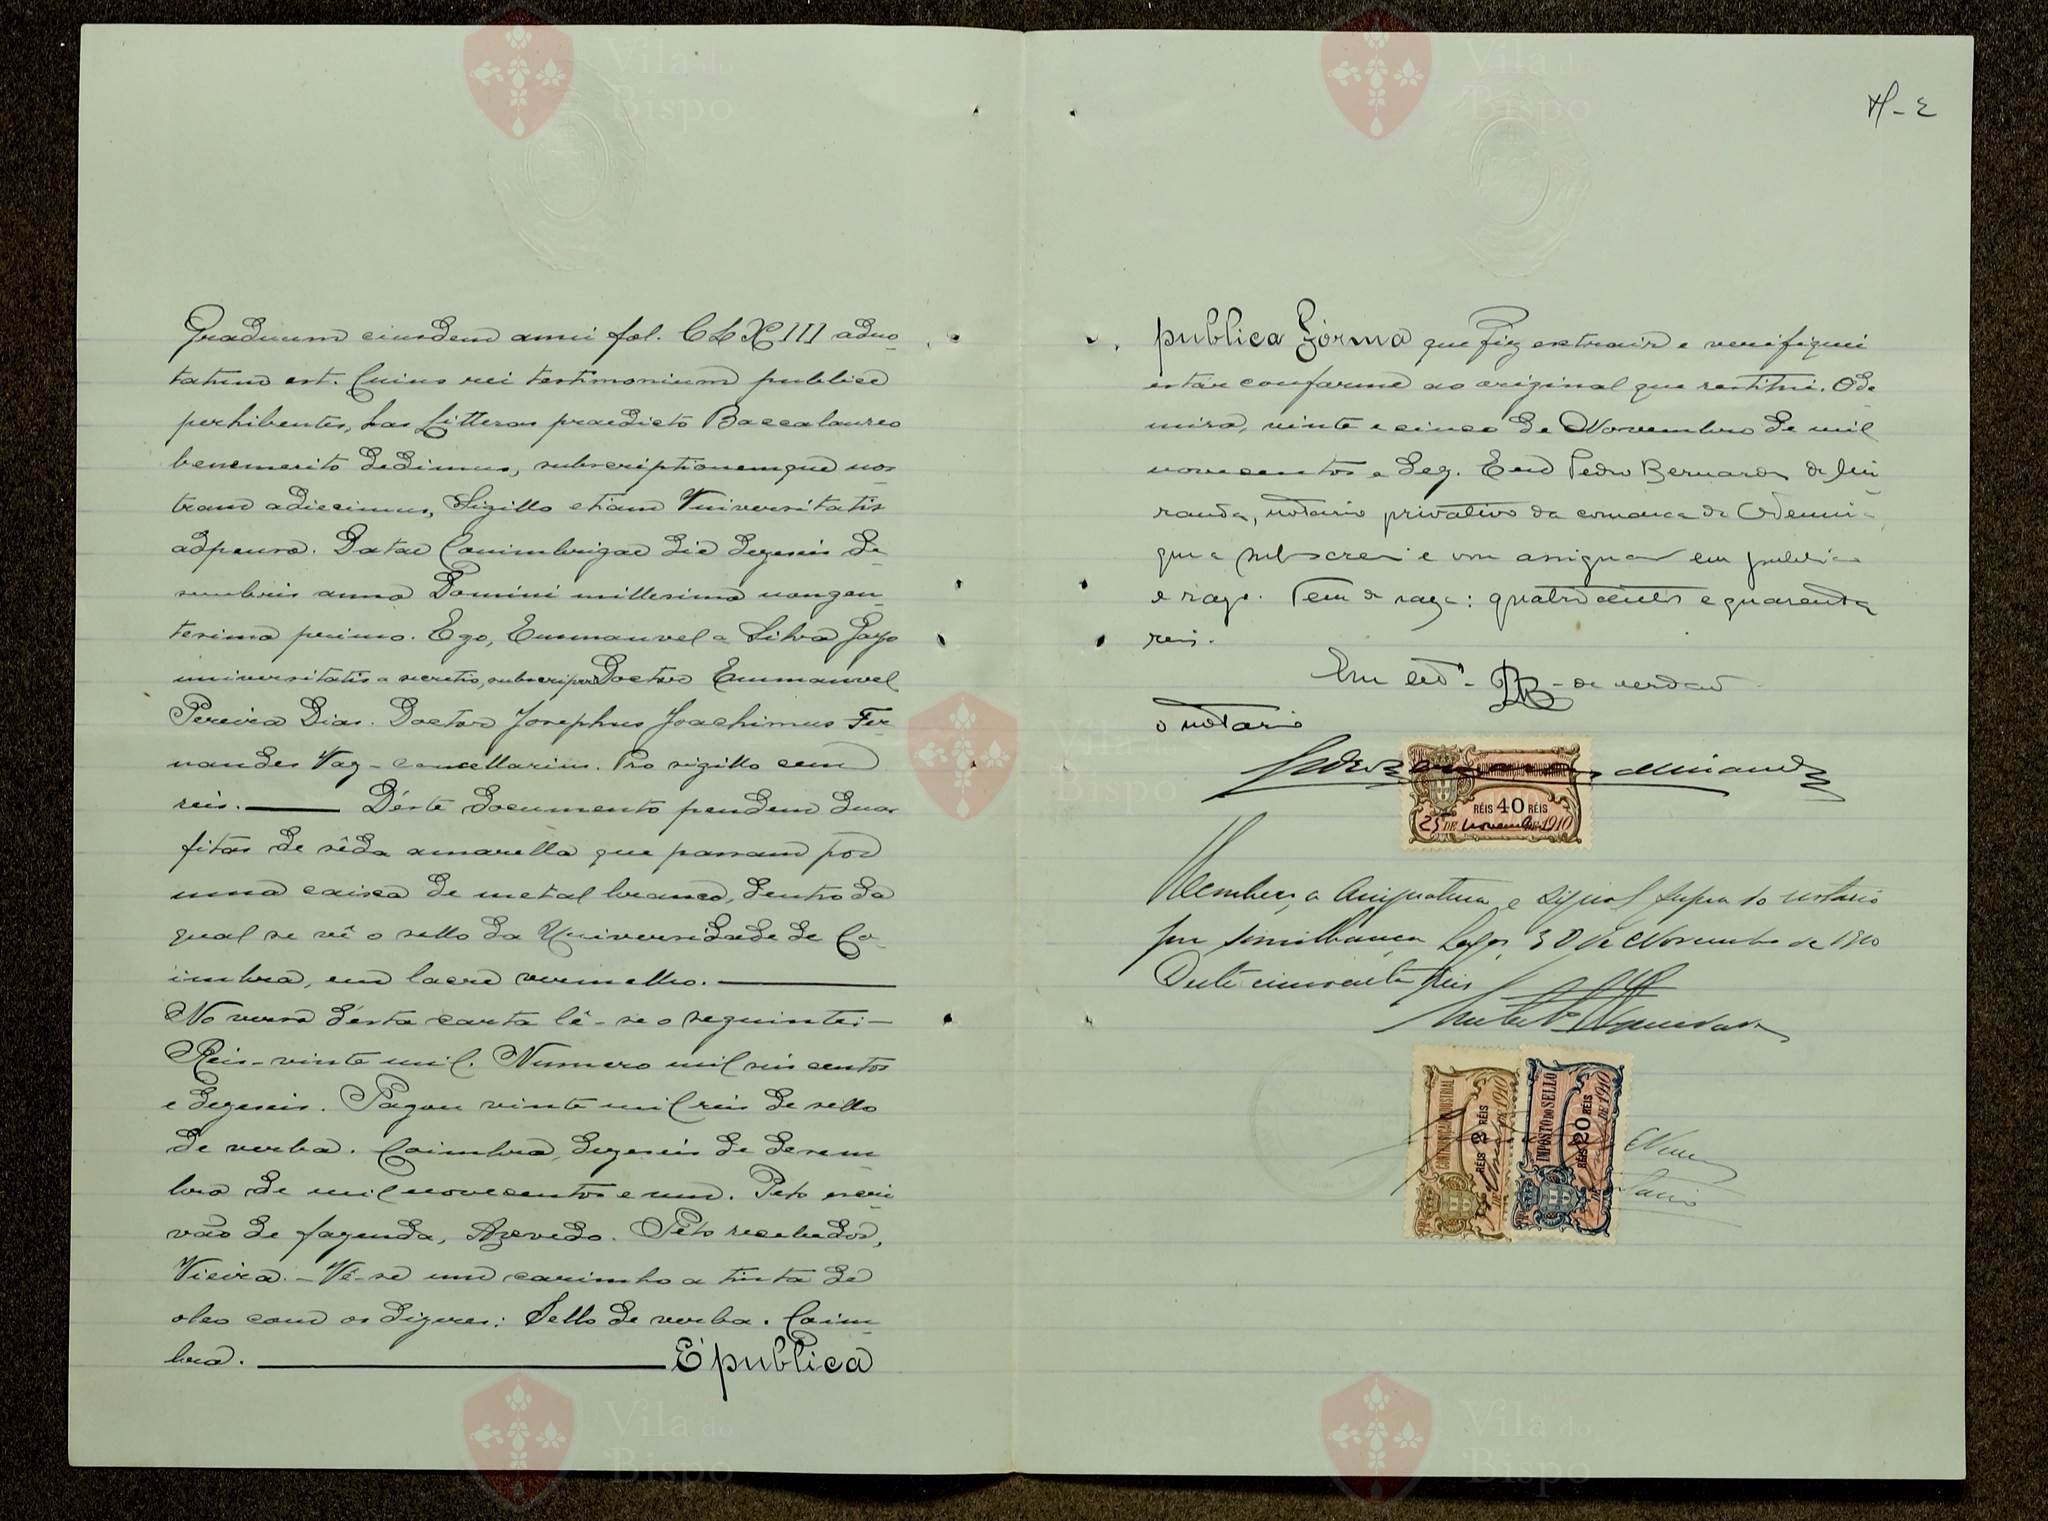 Graduum eiusdem anni fol. CLXIII adno-
tatum est. Cuius rei testimonium publice
perhibentes, has Litteras praedicto Baccalaureo
benemerito dedimus, subscriptionemque nos-
tram adiecimus, Sigillo etiam Universitatis
adpenso. Datae Conimbrigae die dezeseis De-
sembris anno Domini millesimo nongen-
tesimo primo. Ego, Emmanvel a Silva Gayo
universitatis a secretis, subscripsi Doctor Emmanvel
Pereira Dias. Doctor Josephus Joachimus Fer-
nandes Vaz - cancellarius. Pro sigillo cem
reis. Déste documento pendem duas
fitas de sêda amarella que passam por
uma caixa de metal branco, dentro da
qual se vê o sello da Universidade de Co-
imbra, em lacre vermelho.
No verso désta carta lê-se o seguinte:-
Reis-vinte mil. Numero mil seis centos
e dezeseis. Pagou vinte mil reis de sello
de verba. Coimbra, dezeseis de desem-
bro de mil novecentos e um. Pelo escri-
vão de fazenda, Azevedo. Pelo recebedor,
Vieira. - Vê-se um carimbo a tinta de
oleo com os dizeres: Sello de verba. Coim-
bra. E' publica
H-2
publica fórma que fiz extrair e verifiquei
estár conforme ao original que restitui. Ode-
mira, vinte e cinco de Novembro de mil
novecentos e dez. E eu Pedro Bernardo de Mi-
randa, notario privativo da comarca de Odemira
que a subscrevi e vou assignar em publico
e razo. Tem de raza: quatrocentos e quarenta
reis.
Em test.º - PB - de verdade
o notario
Pedro Bernardo de Miranda
CONTRIBUIÇÃO INDUSTRIAL
RÉIS 40 RÉIS
25 DE novembro DE 1910
Reconheço a assignatura e signal supra do notario
por similhança Lagos, 30 de Novembro de 1910
Deste cincoenta reis
CONTRIBUIÇÃO INDUSTRIAL
RÉIS
DE 1910
IMPOSTO DO SELLO
RÉIS 20 RÉIS
DE 1910
Vila do
Bispo
Vila do
Bispo
Vila do
Bispo
Vila do
Bispo
Vila do
Bispo